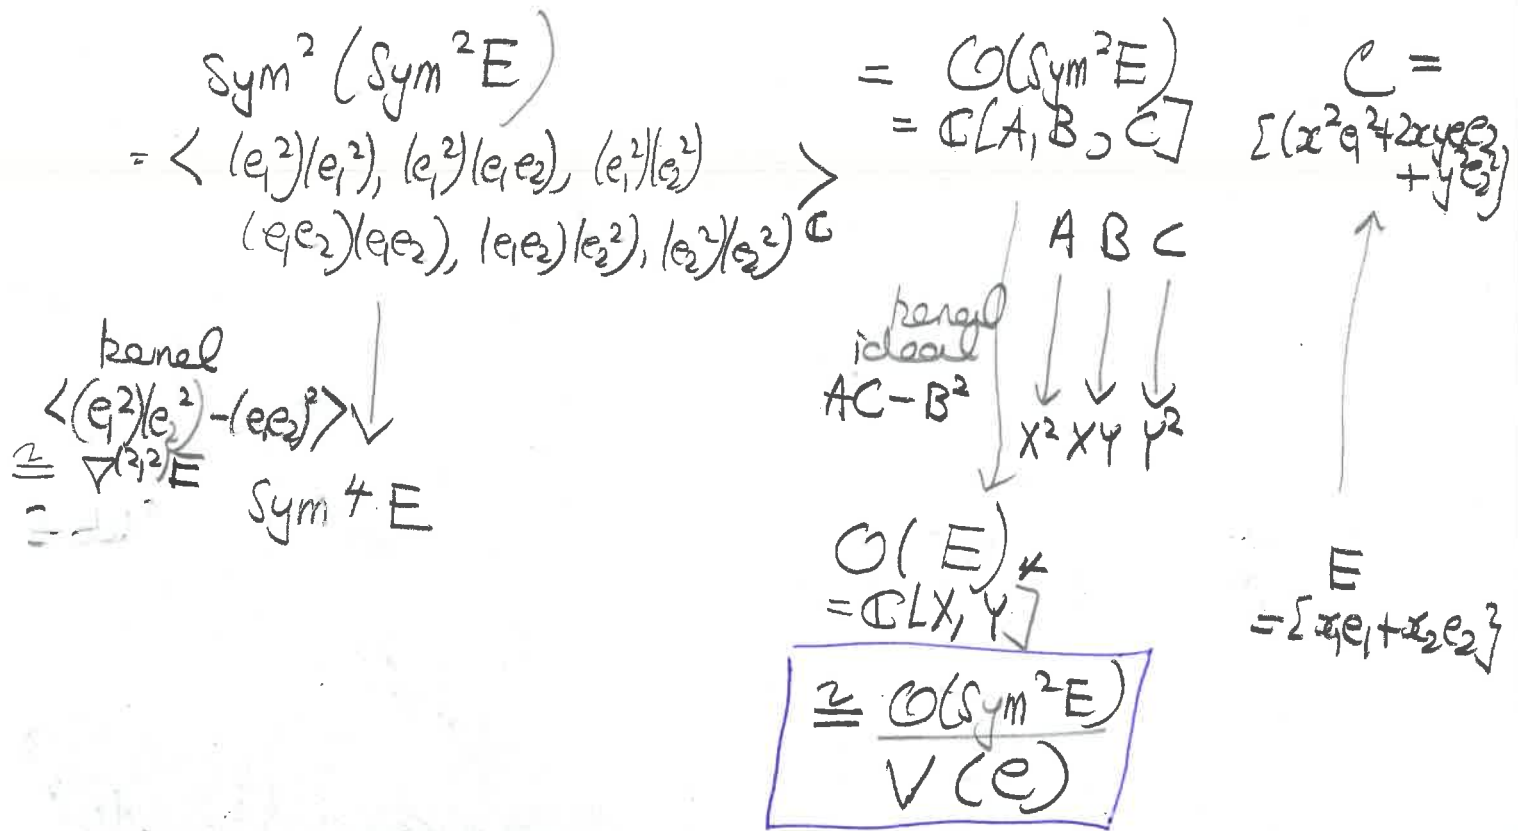 Sym² (Sym²E)
= < (e₁²)(e₁²), (e₁²)(e₁e₂), (e₁²)(e₂²)
(e₁e₂)(e₁e₂), (e₁e₂)(e₂²), (e₂²)(e₂²) >_ℂ
kernel
<(e₁²)(e₂²) - (e₁e₂)²>
≅ ∇^(2,2) E
Sym⁴ E
= O(Sym²E)
= ℂ[A, B, C]
A B C
kernel
ideal
AC - B²
X² XY Y²
O(E)
= ℂ[X, Y]
≅ O(Sym²E)
V(C)
C =
{(x²e₁² + 2xye₁e₂
+ y²e₂²}
E
= {x₁e₁ + x₂e₂}